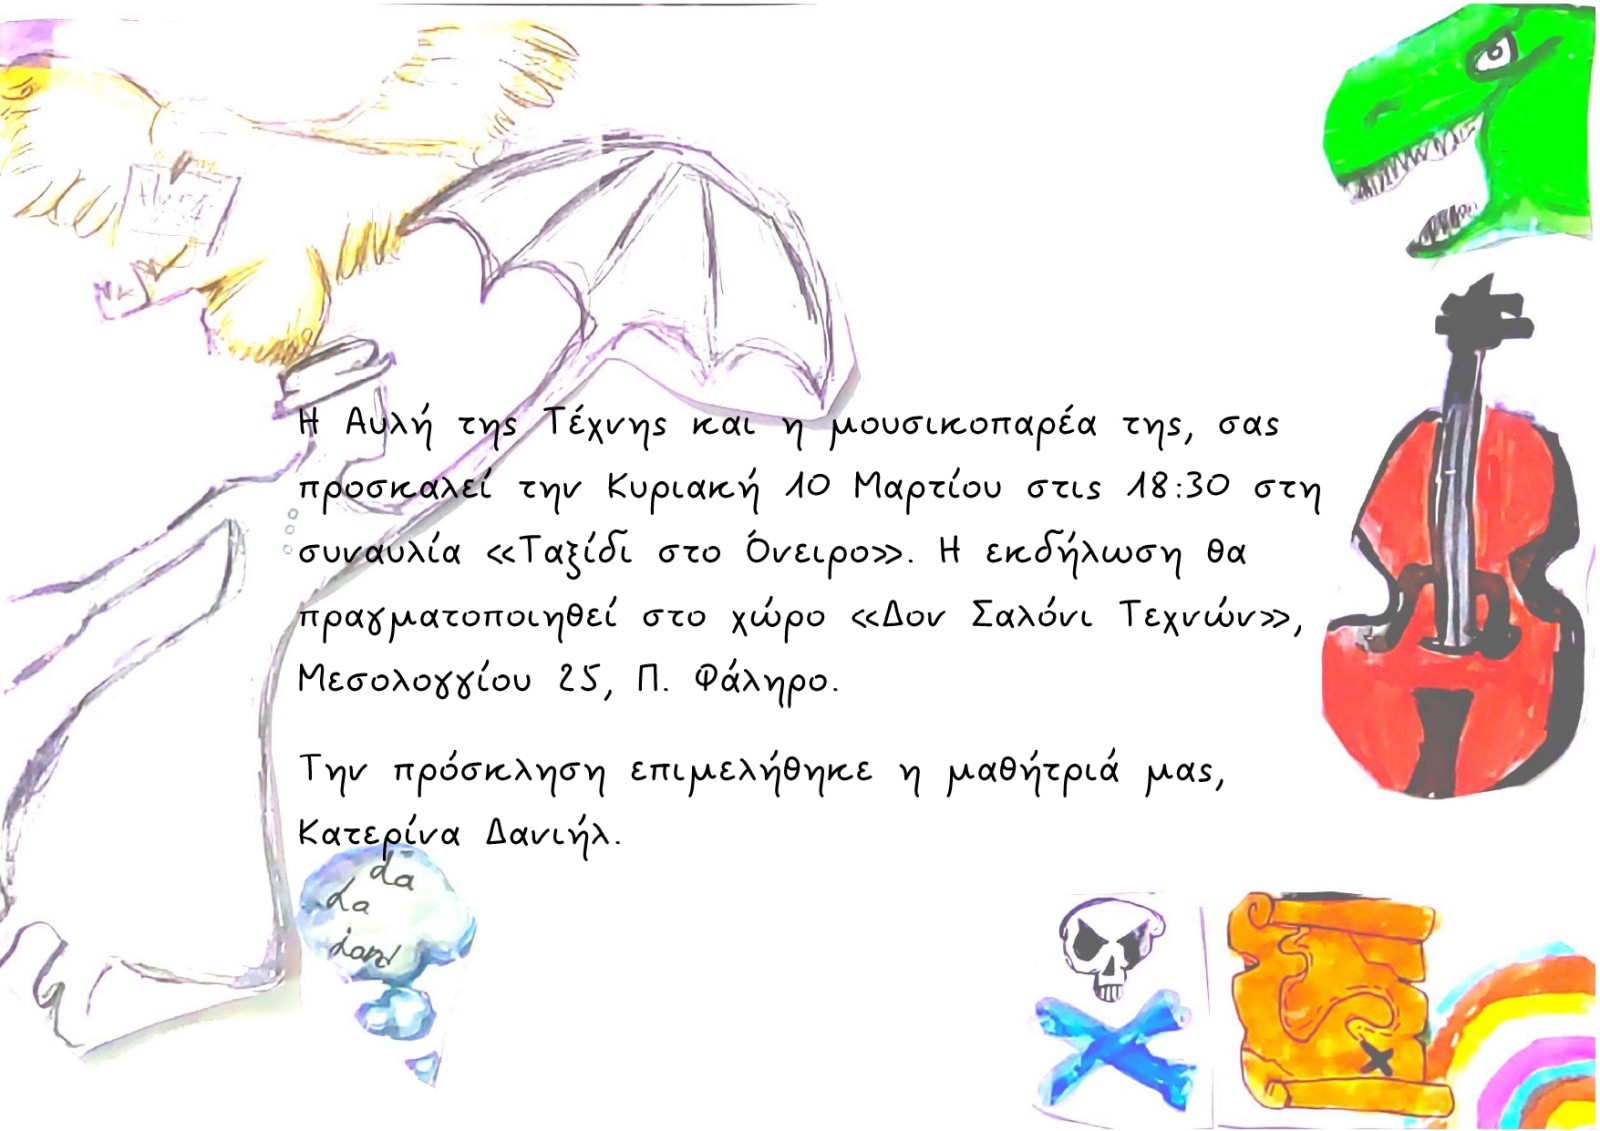 Η Αυλή της Τέχνης και η μουσικοπαρέα της, σας
προσκαλεί την Κυριακή 10 Μαρτίου στις 18:30 στη
συναυλία «Ταξίδι στο Όνειρο». Η εκδήλωση θα
πραγματοποιηθεί στο χώρο «Δον Σαλόνι Τεχνών»,
Μεσολογγίου 25, Π. Φάληρο.
Την πρόσκληση επιμελήθηκε η μαθήτριά μας,
Κατερίνα Δανιήλ.
La
La